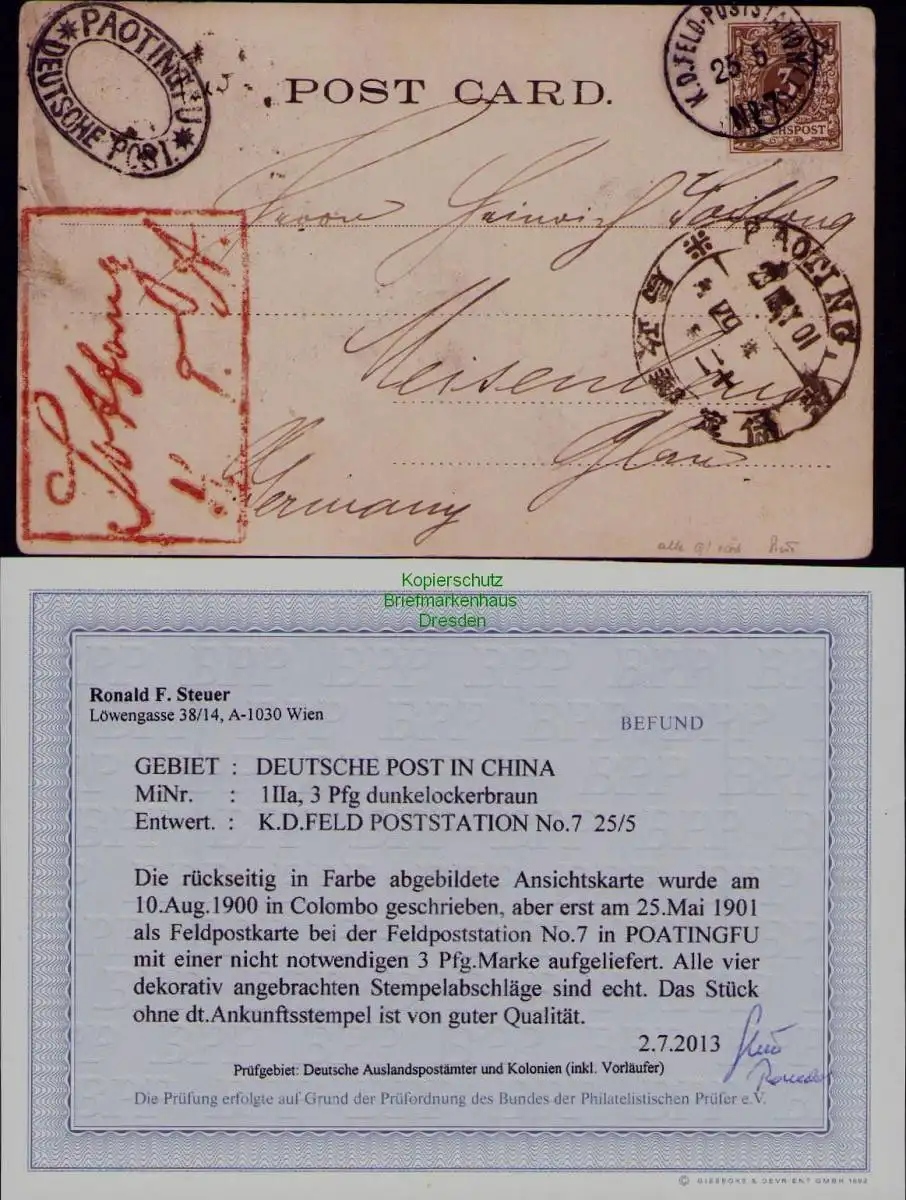 PAOTINGFU
DEUTSCHE POST.
POST CARD.
K.D.FELD-POSTSTATION
25 5
No 7
3
REICHSPOST
Herrn Heinrich
PAOTING
MAY 01
四
二十
保
定
Germany
Kopierschutz
Briefmarkenhaus
Dresden
Ronald F. Steuer
Löwengasse 38/14, A-1030 Wien
BEFUND
GEBIET : DEUTSCHE POST IN CHINA
MiNr. : 1IIa, 3 Pfg dunkelockerbraun
Entwert. : K.D.FELD POSTSTATION No.7 25/5
Die rückseitig in Farbe abgebildete Ansichtskarte wurde am
10.Aug.1900 in Colombo geschrieben, aber erst am 25.Mai 1901
als Feldpostkarte bei der Feldpoststation No.7 in POATINGFU
mit einer nicht notwendigen 3 Pfg.Marke aufgeliefert. Alle vier
dekorativ angebrachten Stempelabschläge sind echt. Das Stück
ohne dt.Ankunftsstempel ist von guter Qualität.
2.7.2013
Prüfgebiet: Deutsche Auslandspostämter und Kolonien (inkl. Vorläufer)
Die Prüfung erfolgte auf Grund der Prüfordnung des Bundes der Philatelistischen Prüfer e.V.
© GIESECKE & DEVRIENT GMBH 1992